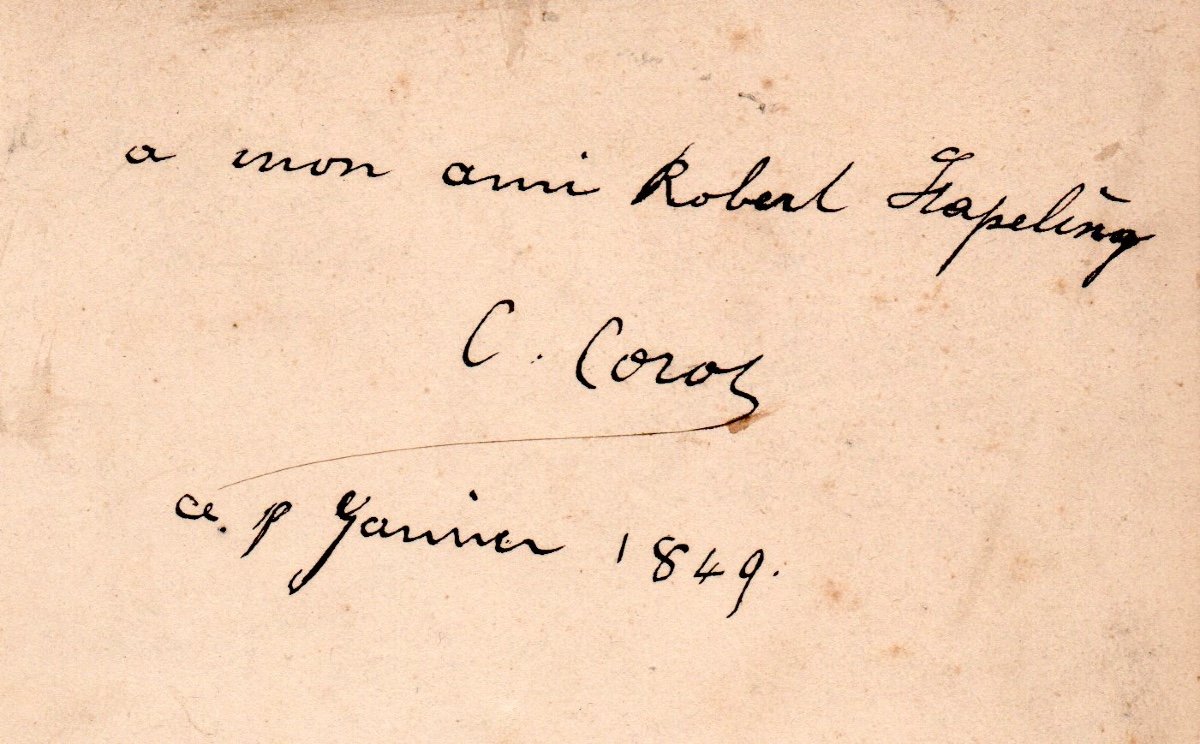 a mon ami Robert Stapeling
C. Corot
ce. Janvier 1849.